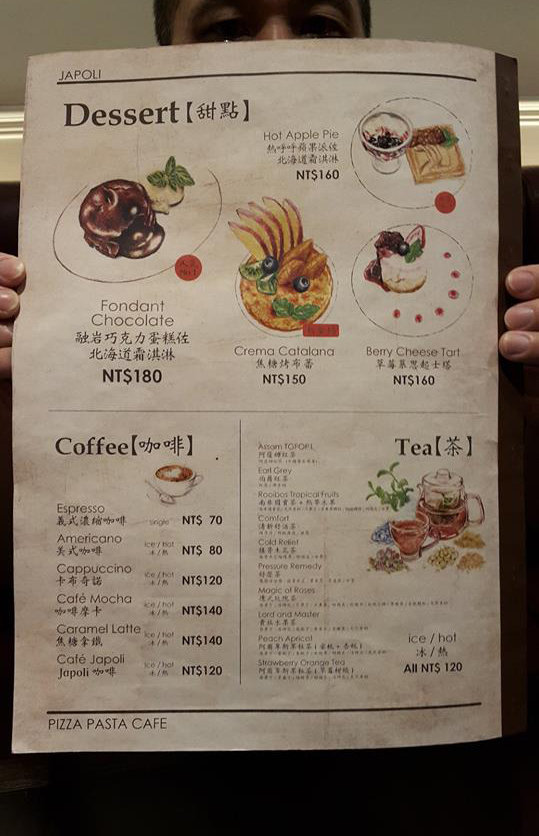 JAPOLI
Dessert【甜點】
Hot Apple Pie
熱呼呼蘋果派佐
北海道霜淇淋
NT$160
Fondant
Chocolate
融岩巧克力蛋糕佐
北海道霜淇淋
NT$180
Crema Catalana
焦糖烤布蕾
NT$150
Berry Cheese Tart
草莓慕思起士塔
NT$160
Coffee【咖啡】
Espresso
義式濃縮咖啡 single NT$ 70
Americano
美式咖啡 ice / hot 冰 / 熱 NT$ 80
Cappuccino
卡布奇諾 ice / hot 冰 / 熱 NT$120
Café Mocha
咖啡摩卡 ice / hot 冰 / 熱 NT$140
Caramel Latte
焦糖拿鐵 ice / hot 冰 / 熱 NT$140
Café Japoli
Japoli 咖啡 ice / hot 冰 / 熱 NT$120
Tea【茶】
Assam TGFOP.L
阿薩姆紅茶
Earl Grey
伯爵紅茶
Rooibos Tropical Fruits
南非國寶茶＋熱帶水果
Comfort
清新舒活茶
Cold Relief
Pressure Remedy
舒壓茶
Magic of Roses
Lord and Master
貴族水果茶
Peach Apricot
Strawberry Orange Tea
ice / hot
冰 / 熱
All NT$ 120
PIZZA PASTA CAFE